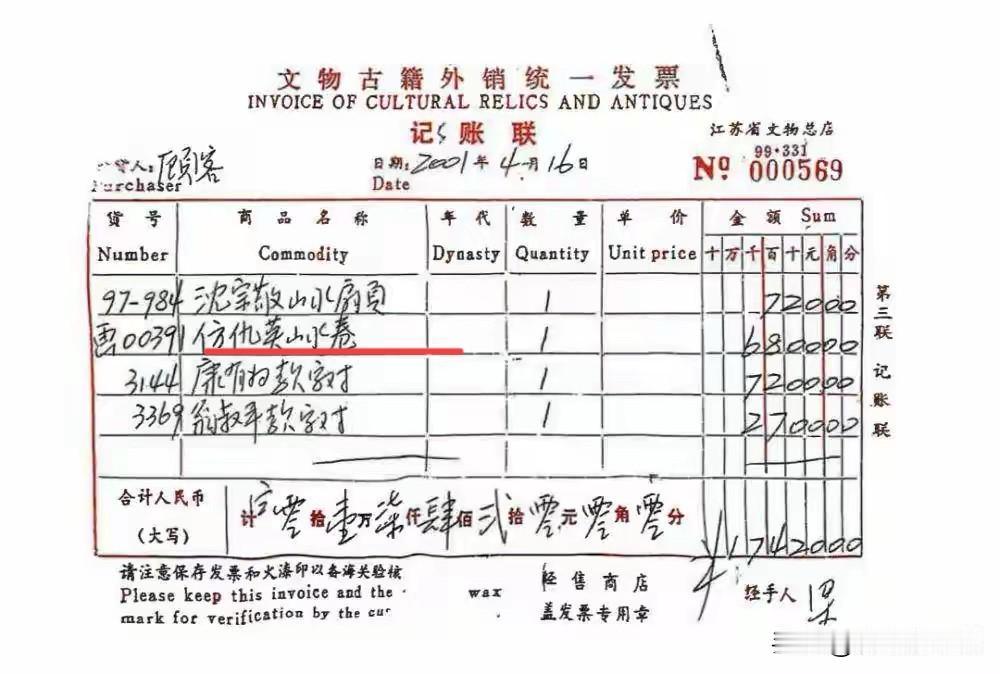 文物古籍外销统一发票
INVOICE OF CULTURAL RELICS AND ANTIQUES
记账联
江苏省文物总店
99·331
Nº 000569
货人:顾客
Purchaser
日期:2001年4月16日
Date
货号 商品名称 年代 数量 单价 金额 Sum
Number Commodity Dynasty Quantity Unit price 十万千百十元角分
97-984 沈宗敬山水扇页 1 72000
书00391 仿仇英山水卷 1 680000
3144 康有为款字对 1 720000
3369 翁叔平款字对 1 270000
合计人民币
(大写)
计零拾壹万柒仟肆佰贰拾零元零角零分
¥1742000
第三联 记账联
请注意保存发票和火漆印以备海关验核
Please keep this invoice and the wax
mark for verification by the cus
经售商店
盖发票专用章
经手人